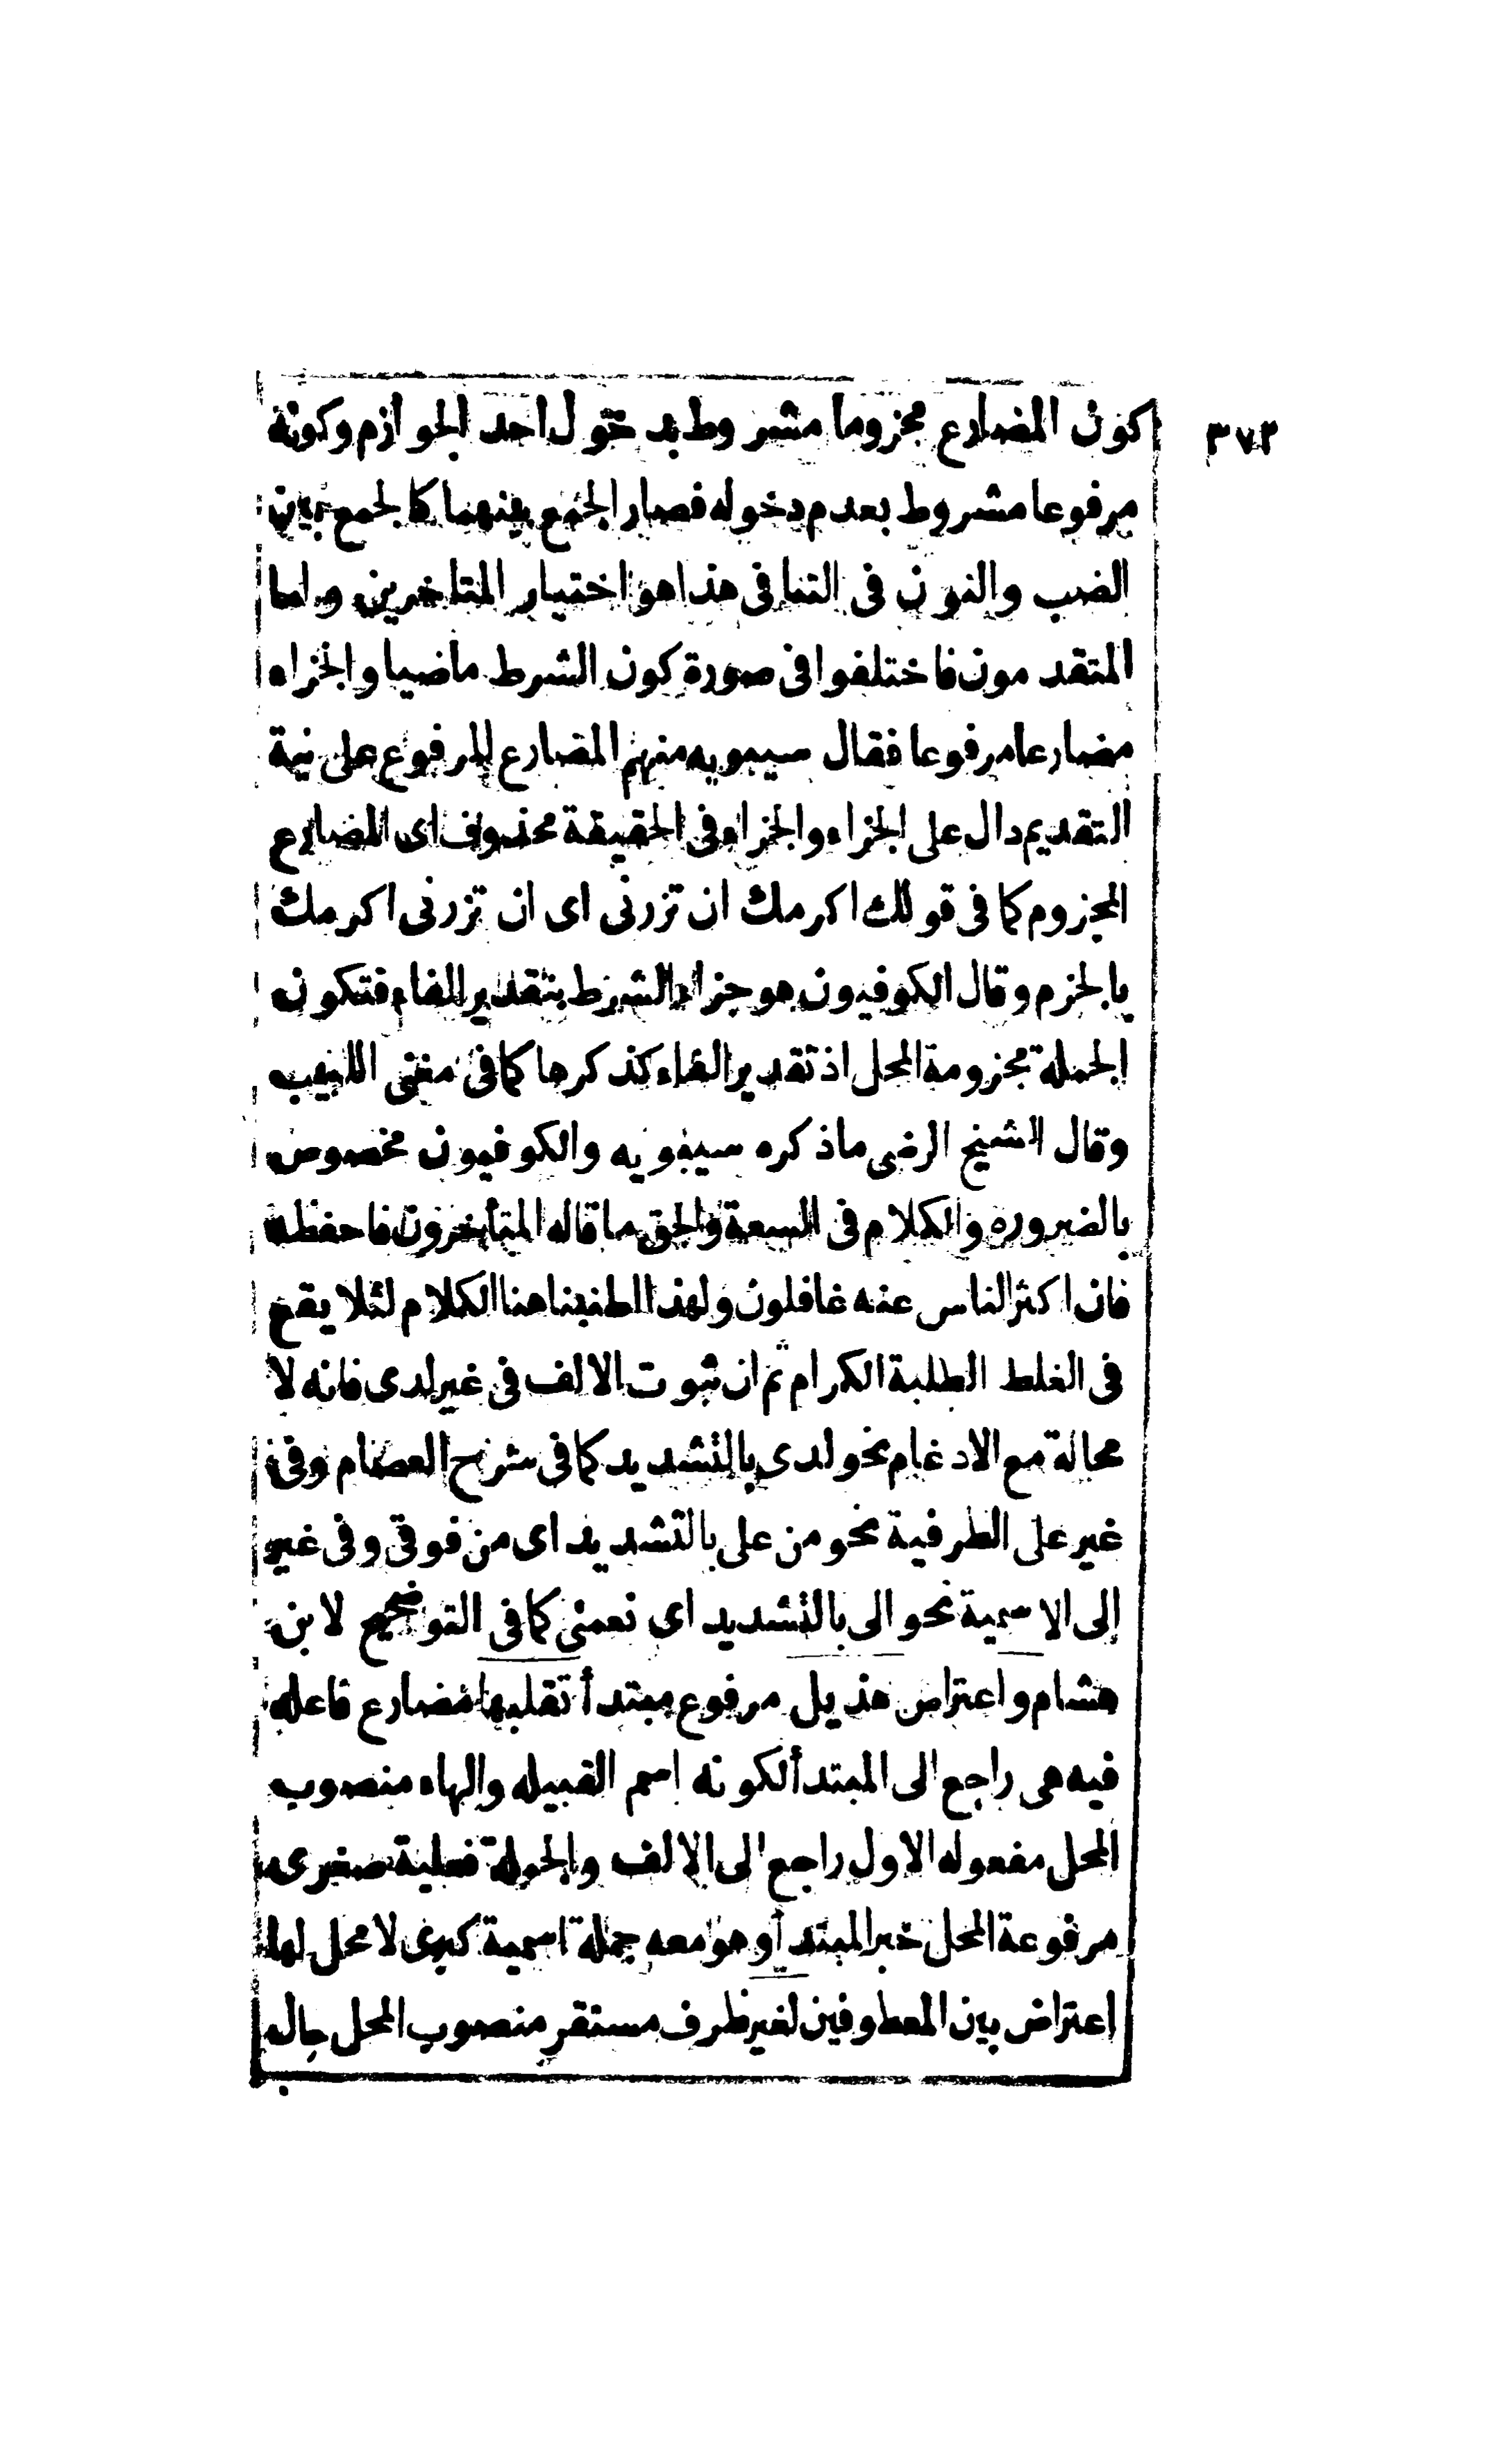 ٣٧٣
كون المضارع مجزوما مشروط بدخول احد الجوازم وكونه
مرفوعا مشروط بعدم دخوله فصار الجمع بينهما كالجمع بين
الضب والنون فى التنافى هذا هو اختيار المتاخرين واما
المتقدمون فاختلفوا فى صورة كون الشرط ماضيا والجزاء
مضارعا مرفوعا فقال سيبويه منهم المضارع المرفوع على نية
التقديم دال على الجزاء والجزاء فى الحقيقة محذوف اى المضارع
المجزوم كما فى قولك اكرمك ان تزرنى اى ان تزرنى اكرمك
بالجزم وقال الكوفيون هو جزاء الشرط بتقدير الفاء فتكون
الجملة مجزومة المحل اذ تقدير الفاء كذكرها كما فى مغنى اللبيب
وقال الشيخ الرضى ماذكره سيبويه والكوفيون مخصوص
بالضروره والكلام فى السعة والحق ماقاله المتأخرون فاحفظه
فان اكثر الناس عنه غافلون ولهذا اطنبنا هنا الكلام لئلا يقع
فى الغلط الطلبة الكرام ثم ان ثبوت الالف فى غير لدى فانه لا
محالة مع الادغام نحو لدى بالتشديد كما فى شرح العصام وفى
غير على الظرفية نحو من على بالتشديد اى من فوقى وفى غير
إلى الاسمية نحو الى بالتشديد اى نعمتى كما فى التوضيح لابن
هشام واعتراض هذيل مرفوع مبتدأ تقلبها مضارع فاعله
فيه هى راجع الى المبتدأ لكونه اسم القبيله والهاء منصوب
المحل مفعوله الاول راجع الى الالف والجملة فعلية صغرى
مرفوعة المحل خبر المبتدأ وهو معه جملة اسمية كبرى لا محل لها
اعتراض بين المعطوفين لغير ظرف مستقر منصوب المحل حاله